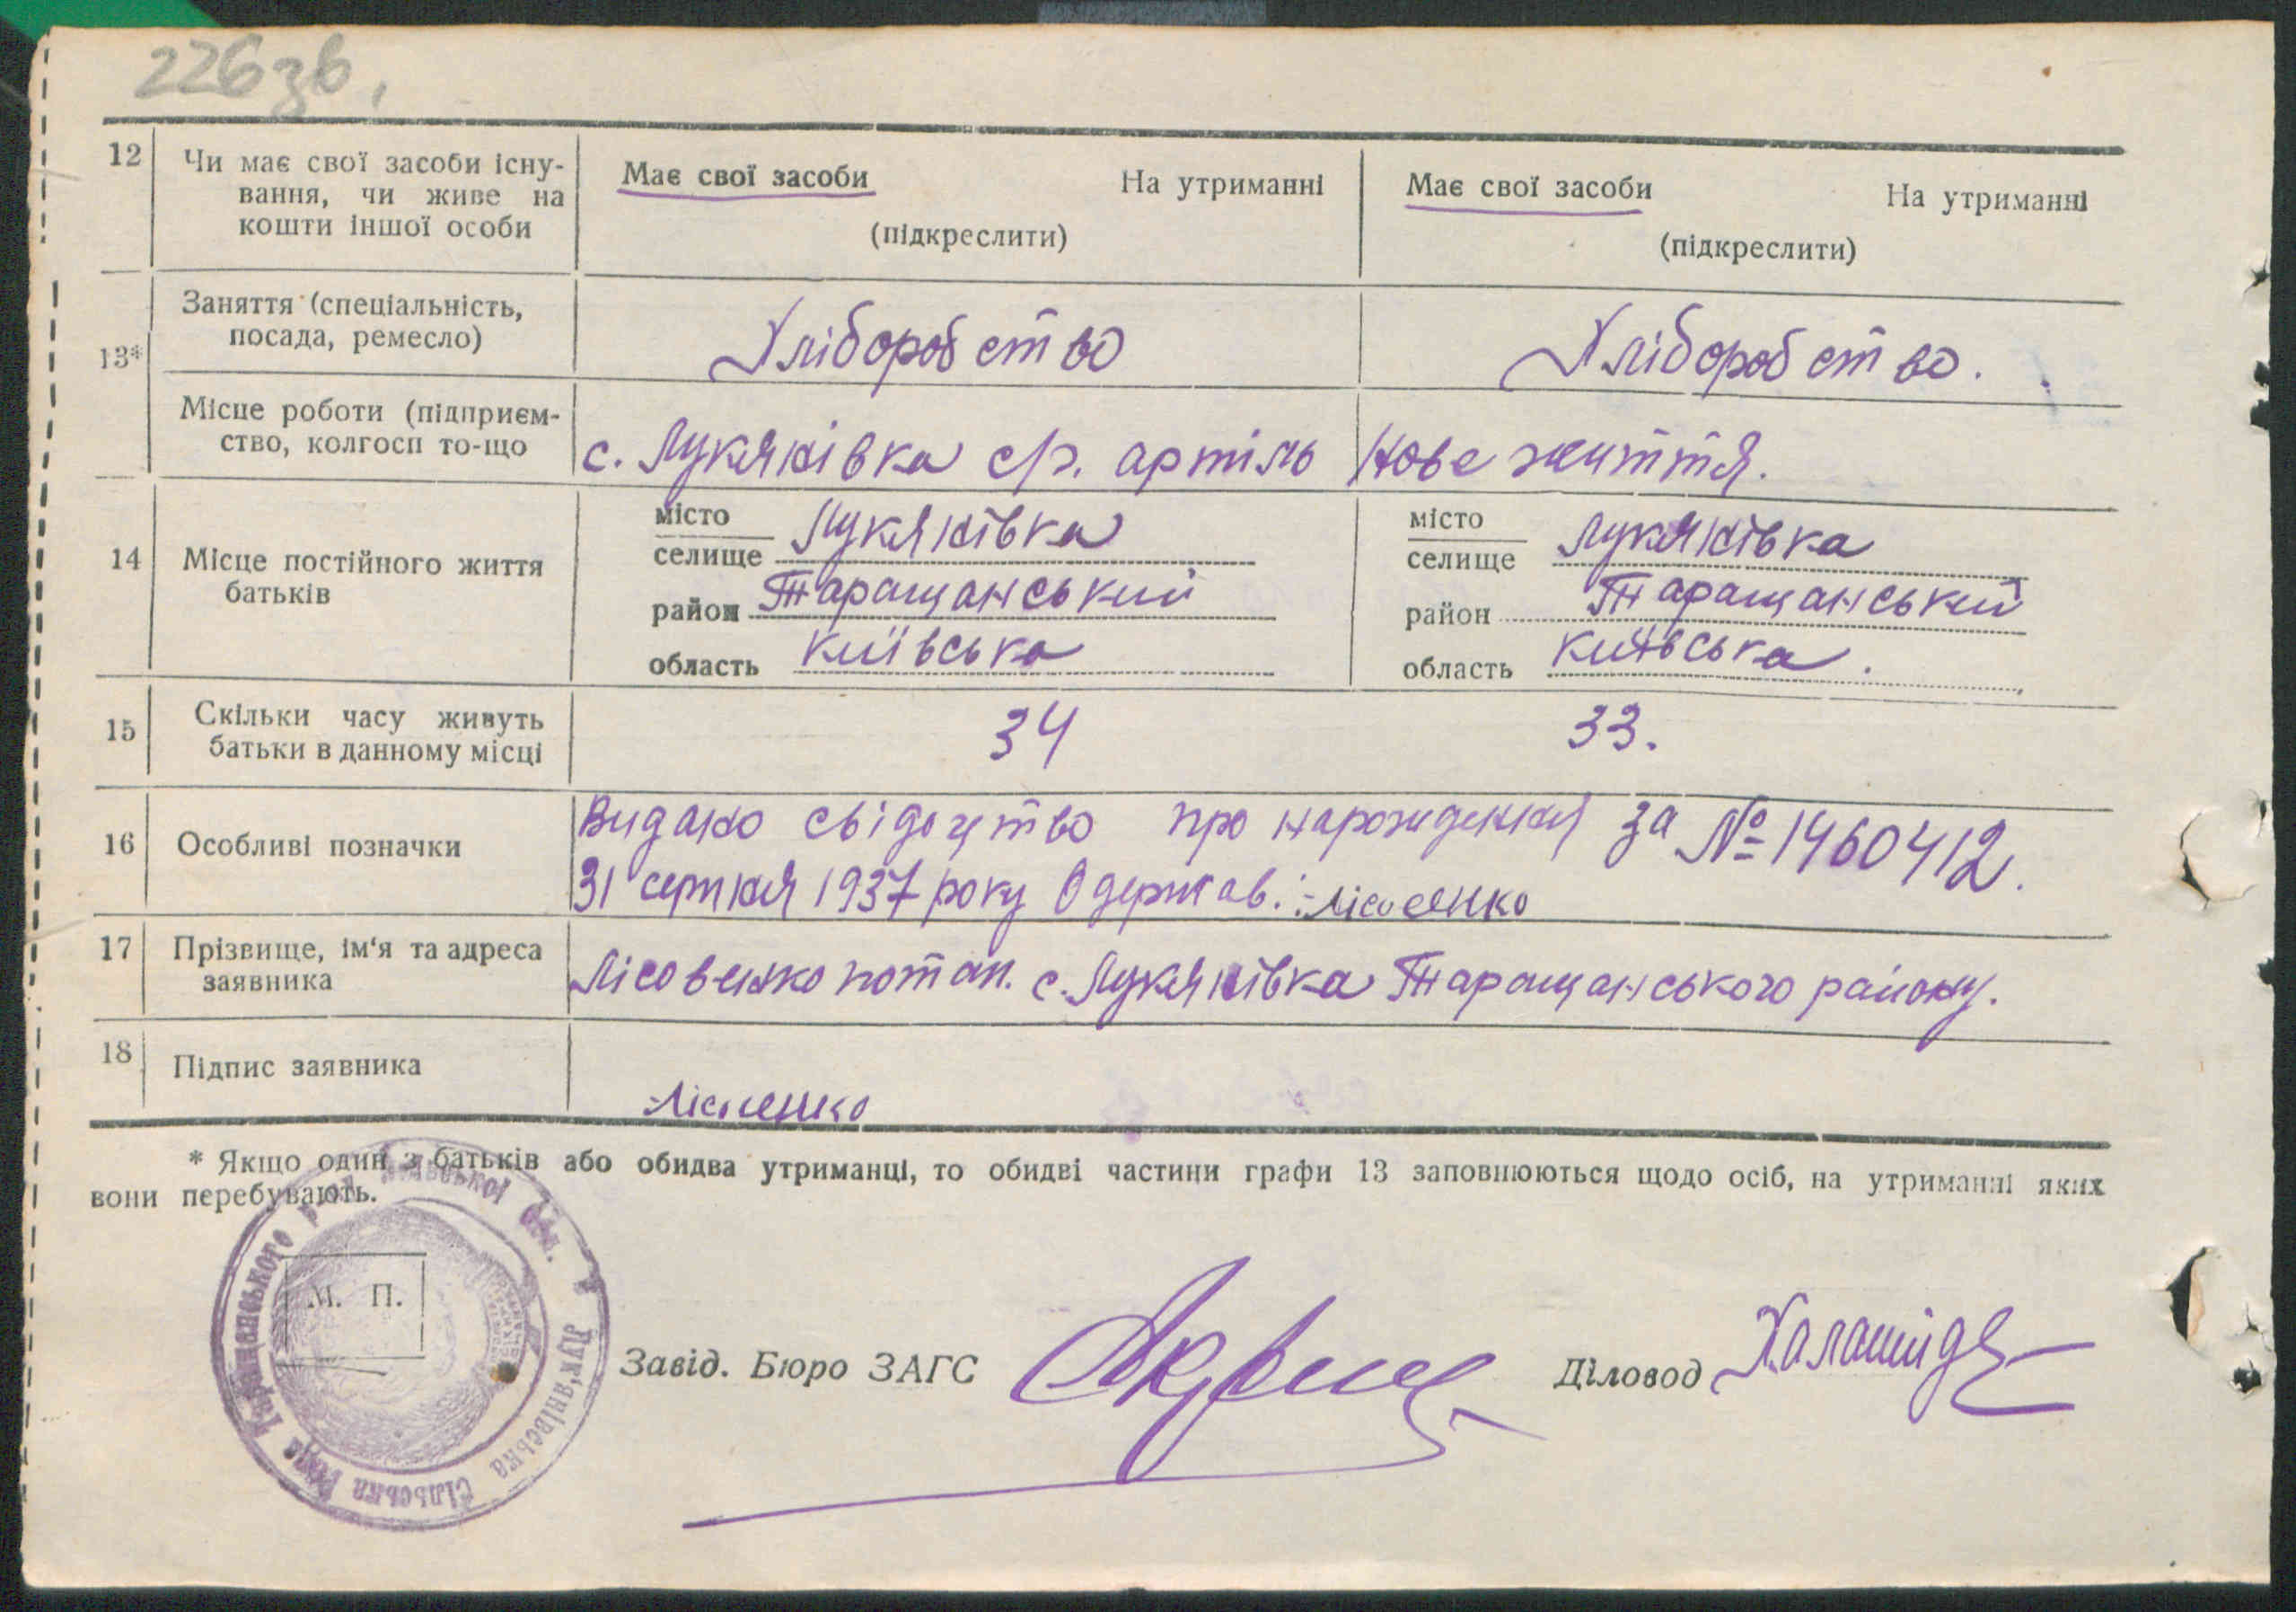 226зв.
12
Чи має свої засоби існу-
вання, чи живе на
кошти іншої особи
Має свої засоби На утриманні
(підкреслити)
Має свої засоби На утриманні
(підкреслити)
13*
Заняття (спеціальність,
посада, ремесло)
Хліборобство
Хліборобство.
Місце роботи (підприєм-
ство, колгосп то-що
с. Лукянівка с/г. артіль Нове життя.
14
Місце постійного життя
батьків
місто
селище Лукянівка
район Таращанський
область Київська
місто
селище Лукянівка
район Таращанський
область Київська.
15
Скільки часу живуть
батьки в данному місці
34
33.
16
Особливі позначки
Видано свідоцтво про народження за № 1460412.
31 серпня 1937 року Одержав: Лісовенко
17
Прізвище, ім'я та адреса
заявника
Лісовенко Потап. с. Лукянівка Таращанського району.
18
Підпис заявника
Лісовенко
* Якщо один з батьків або обидва утриманці, то обидві частини графи 13 заповнюються щодо осіб, на утриманні яких
вони перебувають.
Лук'янівська Сільська Рада Таращанського р Київської обл.
М. П.
Завід. Бюро ЗАГС
Діловод